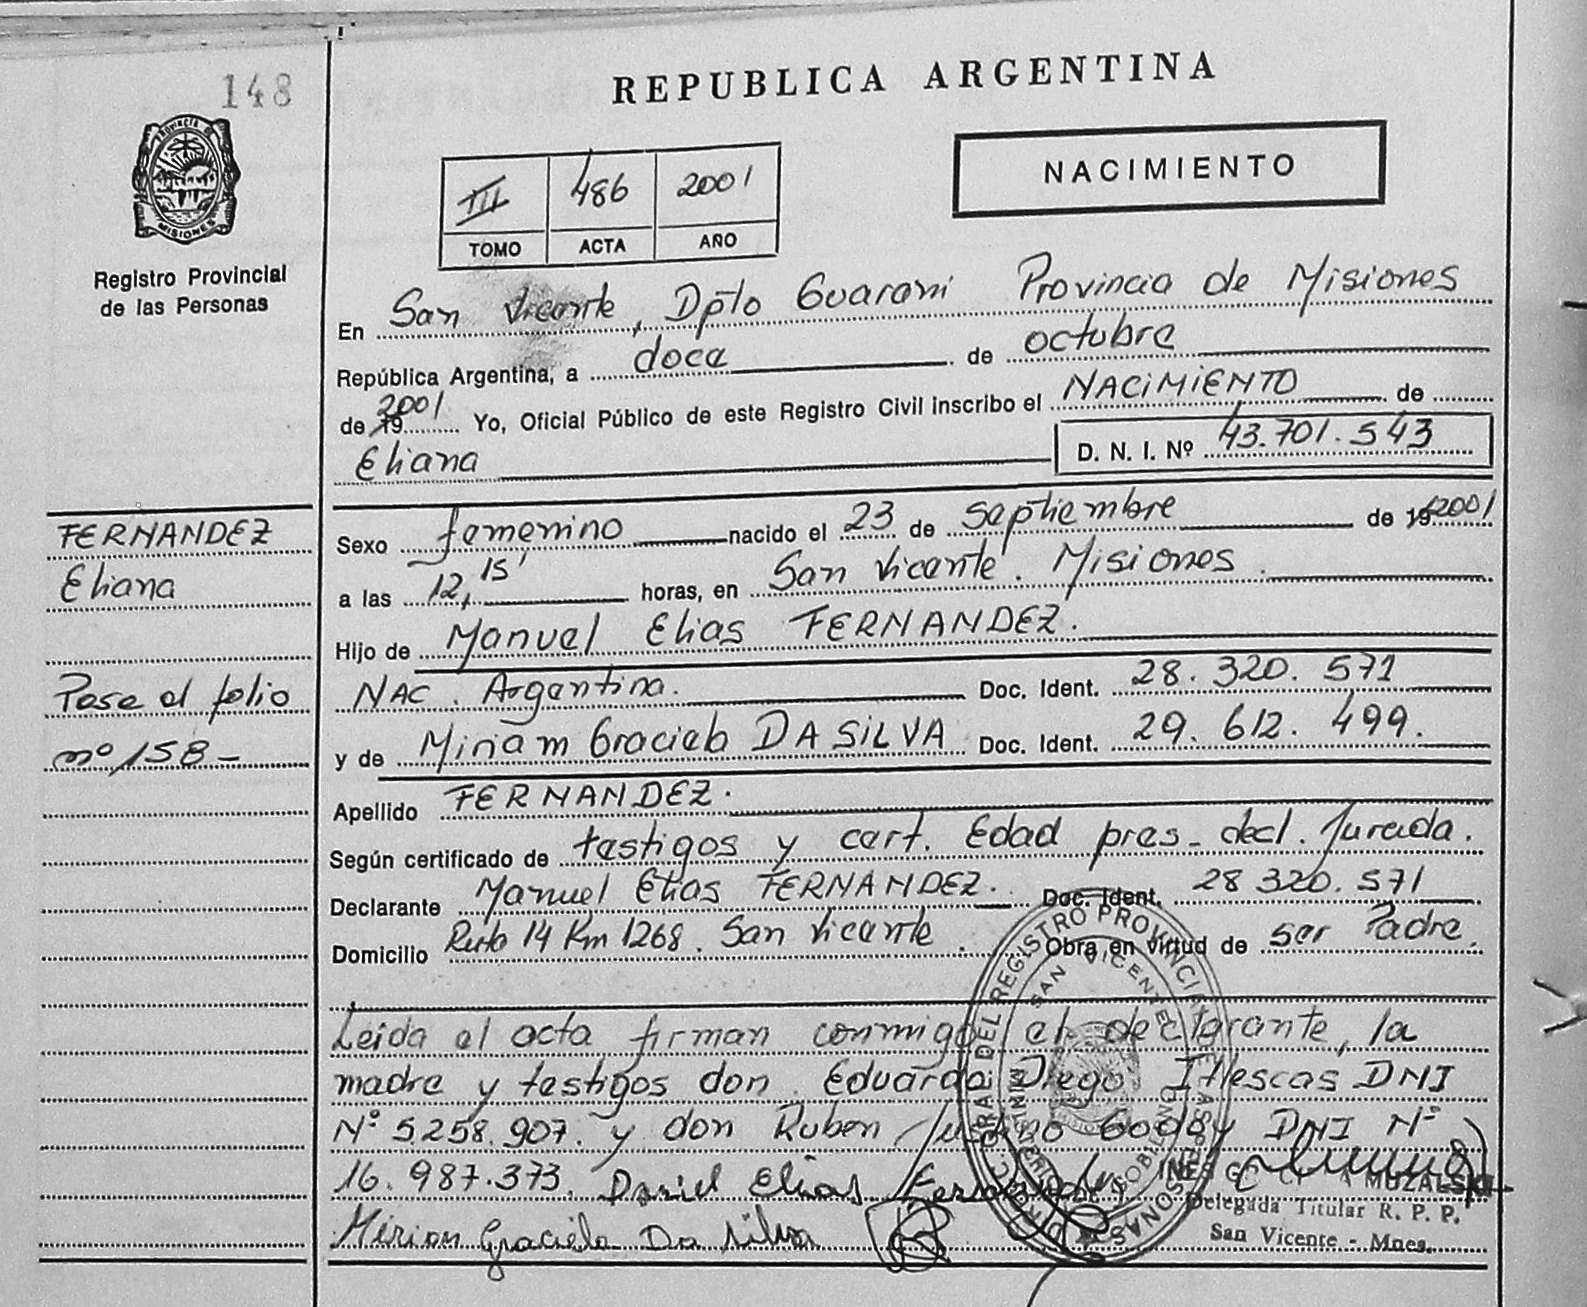 148
REPUBLICA ARGENTINA
PROVINCIA DE
MISIONES
Registro Provincial
de las Personas
III 486 2001
TOMO ACTA AÑO
NACIMIENTO
En San Vicente, Dpto Guarani Provincia de Misiones
República Argentina, a doce de octubre
de 19 2001 Yo, Oficial Público de este Registro Civil inscribo el NACIMIENTO de
Eliana D. N. I. Nº 43.701.543
FERNANDEZ
Eliana
Pase al folio
nº 158-
Sexo femenino nacido el 23 de septiembre de 19 2001
a las 12,15' horas, en San Vicente. Misiones.
Hijo de Manuel Elias FERNANDEZ.
NAC. Argentina. Doc. Ident. 28. 320. 571
y de Miriam Graciela DA SILVA Doc. Ident. 29. 612. 499.
Apellido FERNANDEZ.
Según certificado de testigos y cert. Edad pres- decl. Jurada.
Declarante Manuel Elias FERNANDEZ. Doc. Ident. 28 320. 571
Domicilio Ruta 14 Km 1268. San Vicente. Obra en virtud de ser Padre.
Leida el acta firman conmigo el declarante, la
madre y testigos don Eduardo Diego Illescas DNI
Nº 5.258.907. y don Ruben Godoy DNI Nº
16.987.373. Daniel Elias Fernandez
Mirian Graciela Da Silva
INES MUZALSKI
Delegada Titular R. P. P.
San Vicente - Mnes.
DEL REGISTRO PROVINCIAL DE LAS PERSONAS
SAN VICENTE